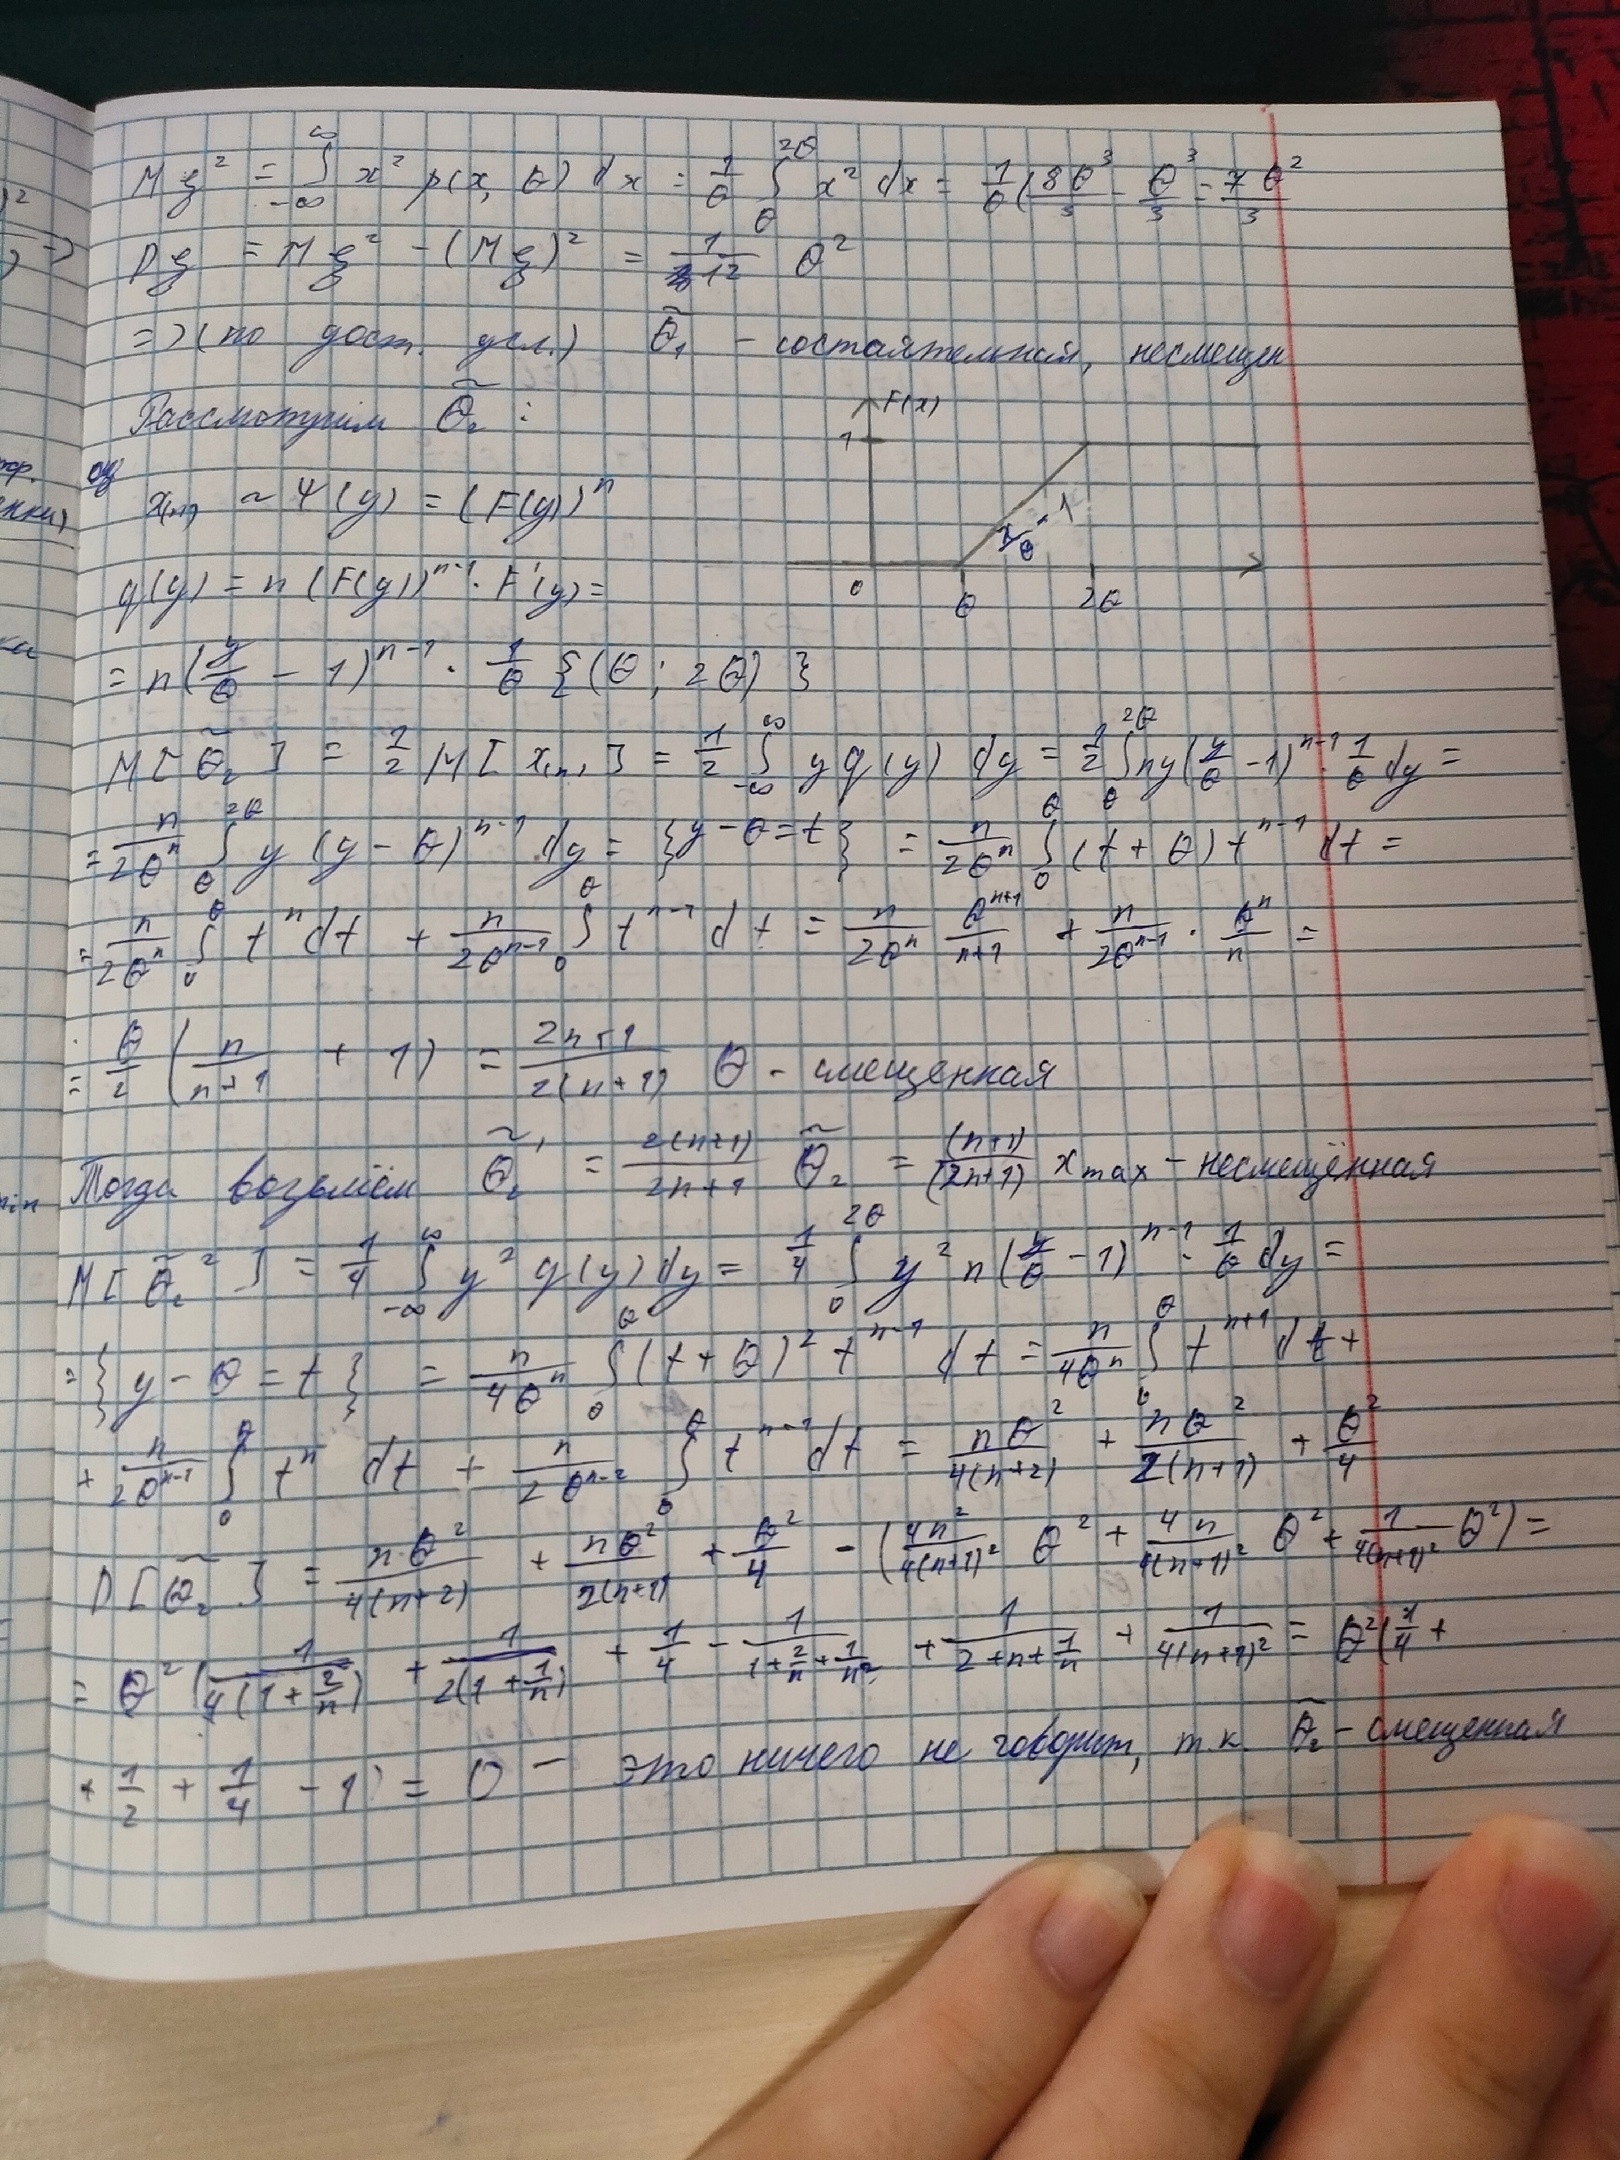 Mξ² = ∫_{-∞}^{∞} x² p(x, θ) dx = 1/θ ∫_{θ}^{2θ} x² dx = 1/θ (8θ³/3 - θ³/3 = 7θ²/3
Dξ = Mξ² - (Mξ)² = 1/12 θ²
=> (по дост. усл.) θ̃₁ - состаятельная, несмещен
Рассмотрим θ̃₂ :
F(x)
1
x/θ - 1
0 θ 2θ
x₍ₙ₎ ~ Ψ(y) = (F(y))ⁿ
φ(y) = n (F(y))ⁿ⁻¹ · F'(y) =
= n(y/θ - 1)ⁿ⁻¹ · 1/θ {(θ; 2θ)}
M[θ̃₂] = 1/2 M[x₍ₙ₎] = 1/2 ∫_{-∞}^{∞} y φ(y) dy = 1/2 ∫_{θ}^{2θ} ny(y/θ - 1)ⁿ⁻¹ · 1/θ dy =
= n/2θⁿ ∫_{θ}^{2θ} y (y - θ)ⁿ⁻¹ dy = {y - θ = t} = n/2θⁿ ∫_{0}^{θ} (t + θ) tⁿ⁻¹ dt =
= n/2θⁿ ∫_{0}^{θ} tⁿ dt + n/2θⁿ⁻¹ ∫_{0}^{θ} tⁿ⁻¹ dt = n/2θⁿ θⁿ⁺¹/n+1 + n/2θⁿ⁻¹ · θⁿ/n =
= θ/2 (n/n+1 + 1) = 2n+1/2(n+1) θ - смещенная
Тогда возьмём θ̃₂' = 2(n+1)/2n+1 θ̃₂ = (n+1)/(2n+1) x max - несмещённая
M[θ̃₂²] = 1/4 ∫_{-∞}^{∞} y² φ(y) dy = 1/4 ∫_{θ}^{2θ} y² n(y/θ - 1)ⁿ⁻¹ · 1/θ dy =
= {y - θ = t} = n/4θⁿ ∫_{0}^{θ} (t + θ)² tⁿ⁻¹ dt = n/4θⁿ ∫_{0}^{θ} tⁿ⁺¹ dt +
+ n/2θⁿ⁻¹ ∫_{0}^{θ} tⁿ dt + n/2θⁿ⁻² ∫_{0}^{θ} tⁿ⁻¹ dt = nθ²/4(n+2) + nθ²/2(n+1) + θ²/4
D[θ̃₂] = nθ²/4(n+2) + nθ²/2(n+1) + θ²/4 - (4n²/4(n+1)² θ² + 4n/4(n+1)² θ² + 1/4(n+1)² θ²) =
= θ² (1/4(1+2/n) + 1/2(1+1/n) + 1/4 - 1/1+2/n+1/n² + 1/2+n+1/n + 1/4(n+1)² = θ²(1/4 +
+ 1/2 + 1/4 - 1) = 0 - это ничего не говорит, т.к. θ̃₂ - смещенная